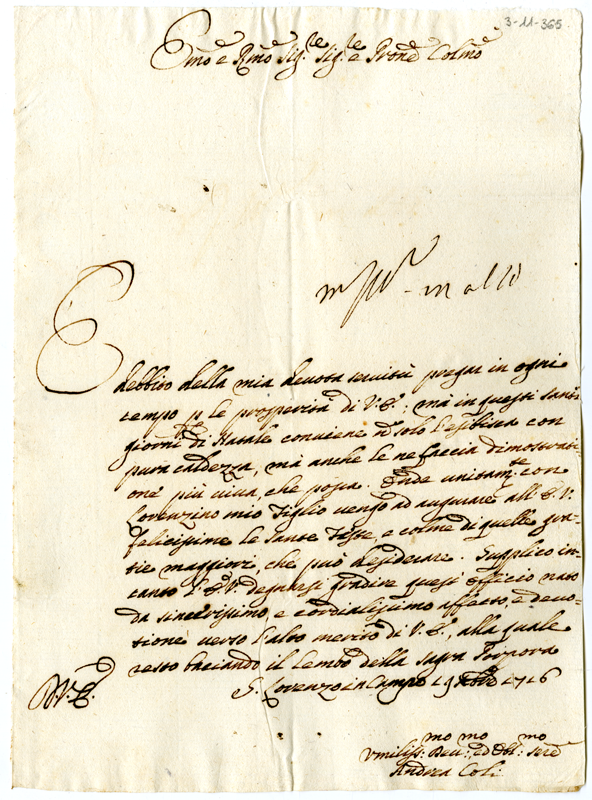 3-11-365.
Emo e Rmo Sig.re Sig.re e Prone Colmo
E
debbito della mia devota servitù pregar in ogni
tempo p le prosperità di V.E.; mà in questi santi
giorni di Natale conviene nō solo l'esibisca con
pura caldezza, mà anche le ne faccia dimostrati-
one più viva, che possa. Onde unitam.te con
Lorenzino mio Figlio vengo ad augurare all'E.V.
felicissime le Sante Feste, e colme di quelle gra-
tie maggiori, che può desiderare. Supplico in-
tanto l'E.V. degnarsi gradire quest'officio nato
da sincerissimo, e cordialissimo affetto, e devo-
tione verso l'alto merito di V.E., alla quale
resto baciando il lembo della sagra Porpora
D.V.E.
S. Lorenzo in Campo 19 1716
Vmiliss: Dev:mo ed Obl:mo Sere
Andrea Coli